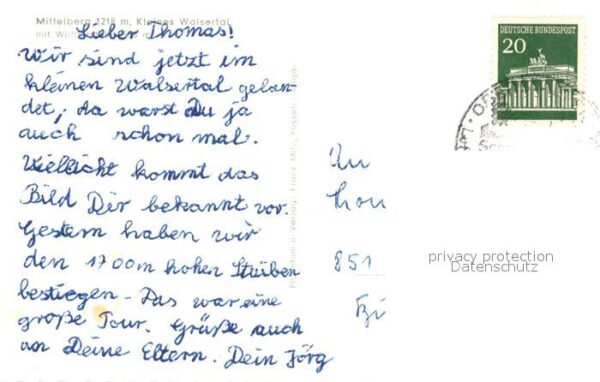 Mittelberg 1218 m, Kleines Walsertal
Lieber Thomas!
Wir sind jetzt im
kleinen Walsertal gelan-
det, da warst Du ja
auch schon mal.
Vielleicht kommt das
Bild Dir bekannt vor.
Gestern haben wir
den 1700m hohen Stuiben
bestiegen. Das war eine
große Tour. Grüße auch
an Deine Eltern. Dein Jörg
An
851
DEUTSCHE BUNDESPOST
20
privacy protection
Datenschutz